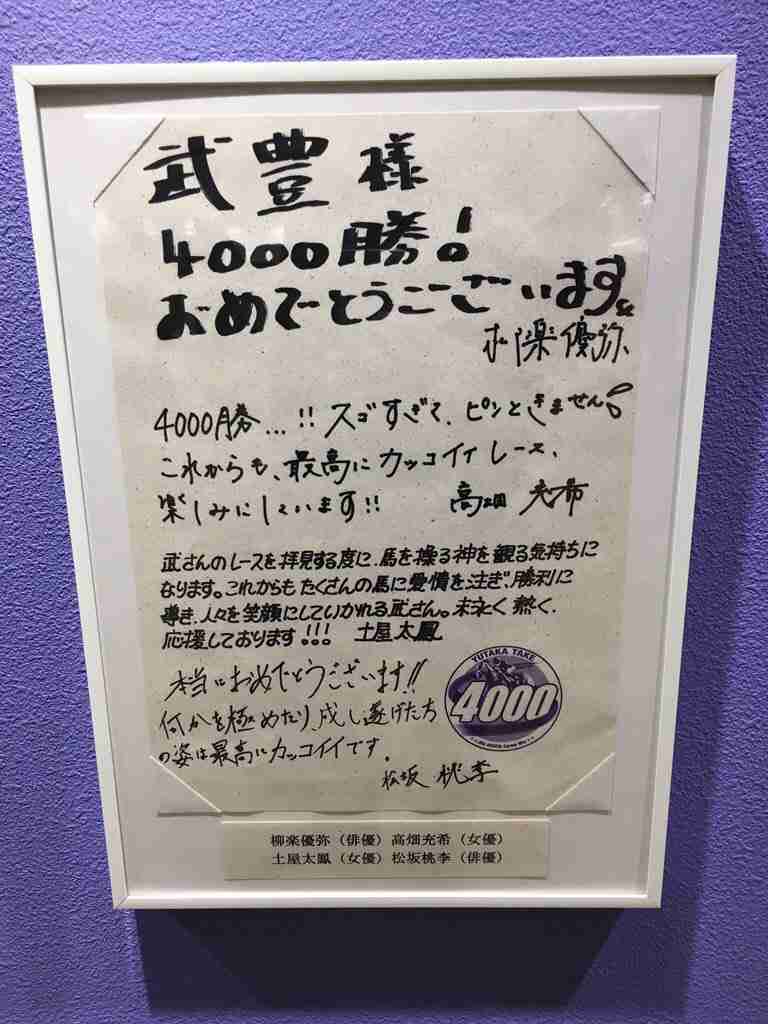 武豊様
4000勝!
おめでとうございます。
柳楽優弥
4000勝...!! スゴすぎて、ピンときません!
これからも、最高にカッコイイレース、
楽しみにしています!! 高畑充希
武さんのレースを拝見する度に、馬を操る神を観る気持ちに
なります。これからもたくさんの馬に愛情を注ぎ、勝利に
導き、人々を笑顔にしていかれる武さん。末永く熱く、
応援しております!!! 土屋太鳳
本当におめでとうございます!!
何かを極めたり、成し遂げたち
の姿は最高にカッコイイです。
松坂桃李
YUTAKA TAKE
4000
柳楽優弥(俳優)高畑充希(女優)
土屋太鳳(女優)松坂桃李(俳優)